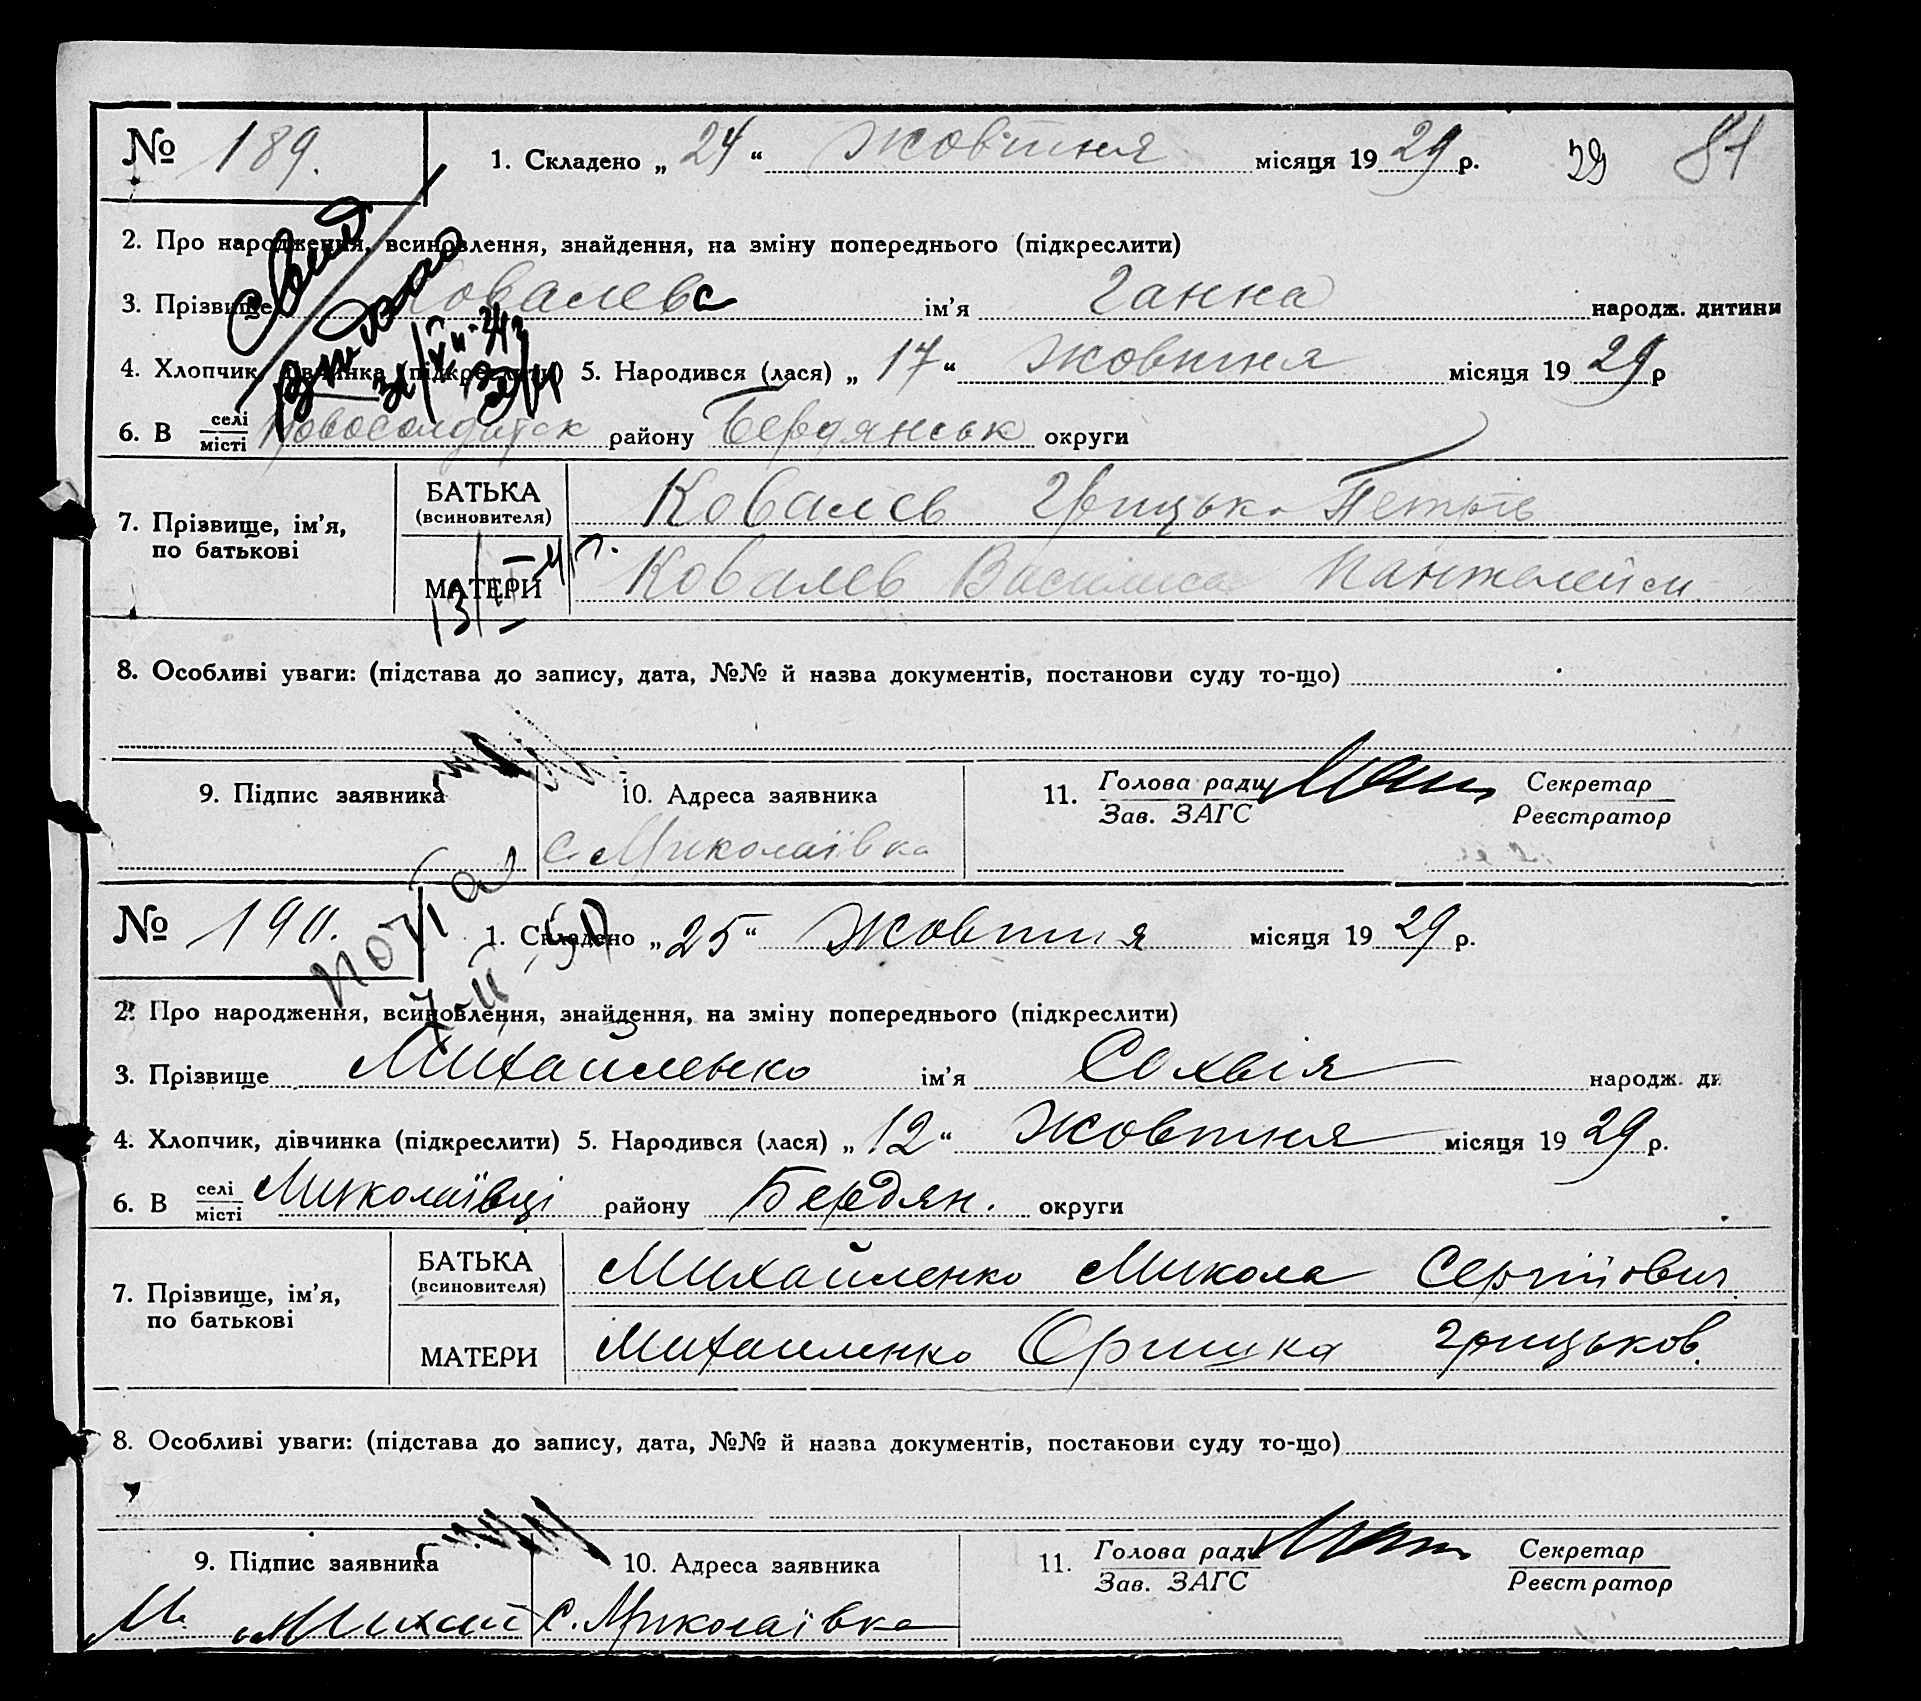 № 189. 1. Складено „ 24 “ Жовтня місяця 19 29 р. 39 81
2. Про народження, всиновлення, знайдення, на зміну попереднього (підкреслити)
3. Прізвище Ковалева ім’я Ганна народж. дитини
4. Хлопчик, дівчинка (підкреслити) 5. Народився (лася) „ 17 “ Жовтня місяця 19 29 р
6. В селі місті району Бердянськ округи
7. Прізвище, ім’я, по батькові
БАТЬКА (всиновителя) Ковалев Грицько Петрів
МАТЕРИ Ковалев Василиса Пантелейм
8. Особливі уваги: (підстава до запису, дата, №№ й назва документів, постанови суду то-що)
9. Підпис заявника 10. Адреса заявника 11. Голова ради Зав. ЗАГС Секретар Реєстратор
с. Миколаївка
№ 190. 1. Складено „ 25 “ Жовтня місяця 19 29 р.
2. Про народження, всиновлення, знайдення, на зміну попереднього (підкреслити)
3. Прізвище Михайленко ім’я Сохвія народж. ди
4. Хлопчик, дівчинка (підкреслити) 5. Народився (лася) „ 12 “ Жовтня місяця 19 29 р.
6. В селі місті Миколаївці району Бердян. округи
7. Прізвище, ім’я, по батькові
БАТЬКА (всиновителя) Михайленко Микола Сергійович
МАТЕРИ Михайленко Оришка Грицьков.
8. Особливі уваги: (підстава до запису, дата, №№ й назва документів, постанови суду то-що)
9. Підпис заявника 10. Адреса заявника 11. Голова ради Зав. ЗАГС Секретар Реєстратор
М. Михай с. Миколаївка